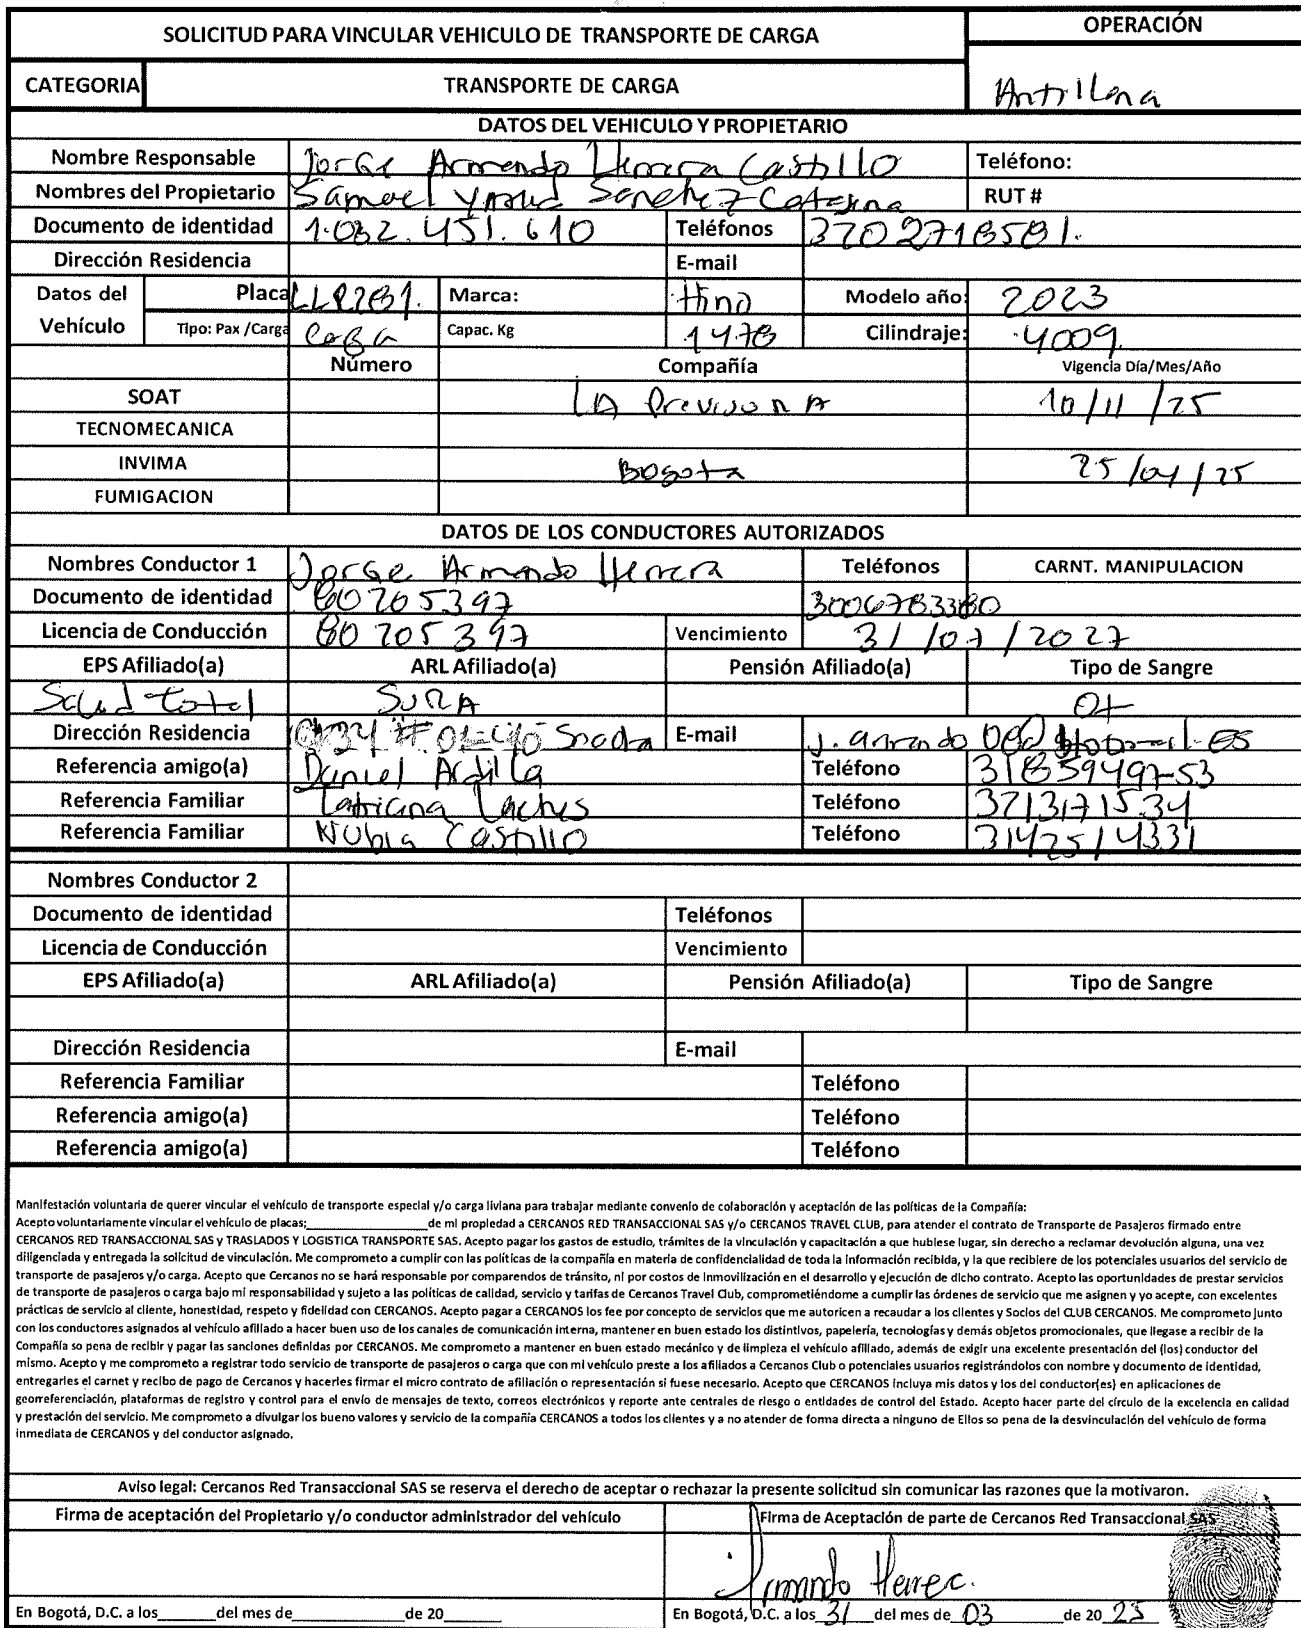 SOLICITUD PARA VINCULAR VEHICULO DE TRANSPORTE DE CARGA
OPERACIÓN
CATEGORIA TRANSPORTE DE CARGA Antillana
DATOS DEL VEHICULO Y PROPIETARIO
Nombre Responsable Jorge Armando Herrera Castillo Teléfono:
Nombres del Propietario Samuel Sanchez RUT #
Documento de identidad 1.082.451.610 Teléfonos 3202718581.
Dirección Residencia E-mail
Datos del Vehículo Placa Marca: Hino Modelo año: 2023
Tipo: Pax /Carga CaRGA Capac. Kg 1478 Cilindraje: 4009
Número Compañía Vigencia Día/Mes/Año
SOAT LA PrevisoRA 10/11/25
TECNOMECANICA
INVIMA Bogota 25/04/25
FUMIGACION
DATOS DE LOS CONDUCTORES AUTORIZADOS
Nombres Conductor 1 Jorge Armando Herrera Teléfonos CARNT. MANIPULACION
Documento de identidad 80205397 3006783380
Licencia de Conducción 80205397 Vencimiento 31/07/2027
EPS Afiliado(a) ARL Afiliado(a) Pensión Afiliado(a) Tipo de Sangre
Salud total SURA O+
Dirección Residencia Soacha E-mail
Referencia amigo(a) Daniel Ardilla Teléfono 3185949753
Referencia Familiar Teléfono 3213171534
Referencia Familiar Nubia Castillo Teléfono 3142514331
Nombres Conductor 2
Documento de identidad Teléfonos
Licencia de Conducción Vencimiento
EPS Afiliado(a) ARL Afiliado(a) Pensión Afiliado(a) Tipo de Sangre
Dirección Residencia E-mail
Referencia Familiar Teléfono
Referencia amigo(a) Teléfono
Referencia amigo(a) Teléfono
Manifestación voluntaria de querer vincular el vehículo de transporte especial y/o carga liviana para trabajar mediante convenio de colaboración y aceptación de las políticas de la Compañía:
Acepto voluntariamente vincular el vehículo de placas:____________________de mi propiedad a CERCANOS RED TRANSACCIONAL SAS y/o CERCANOS TRAVEL CLUB, para atender el contrato de Transporte de Pasajeros firmado entre
CERCANOS RED TRANSACCIONAL SAS y TRASLADOS Y LOGISTICA TRANSPORTE SAS. Acepto pagar los gastos de estudio, trámites de la vinculación y capacitación a que hubiese lugar, sin derecho a reclamar devolución alguna, una vez
diligenciada y entregada la solicitud de vinculación. Me comprometo a cumplir con las políticas de la compañía en materia de confidencialidad de toda la información recibida, y la que recibiere de los potenciales usuarios del servicio de
transporte de pasajeros y/o carga. Acepto que Cercanos no se hará responsable por comparendos de tránsito, ni por costos de inmovilización en el desarrollo y ejecución de dicho contrato. Acepto las oportunidades de prestar servicios
de transporte de pasajeros o carga bajo mi responsabilidad y sujeto a las políticas de calidad, servicio y tarifas de Cercanos Travel Club, comprometiéndome a cumplir las órdenes de servicio que me asignen y yo acepte, con excelentes
prácticas de servicio al cliente, honestidad, respeto y fidelidad con CERCANOS. Acepto pagar a CERCANOS los fee por concepto de servicios que me autoricen a recaudar a los clientes y Socios del CLUB CERCANOS. Me comprometo junto
con los conductores asignados al vehículo afiliado a hacer buen uso de los canales de comunicación interna, mantener en buen estado los distintivos, papelería, tecnologías y demás objetos promocionales, que llegase a recibir de la
Compañía so pena de recibir y pagar las sanciones definidas por CERCANOS. Me comprometo a mantener en buen estado mecánico y de limpieza el vehículo afiliado, además de exigir una excelente presentación del (los) conductor del
mismo. Acepto y me comprometo a registrar todo servicio de transporte de pasajeros o carga que con mi vehículo preste a los afiliados a Cercanos Club o potenciales usuarios registrándolos con nombre y documento de identidad,
entregarles el carnet y recibo de pago de Cercanos y hacerles firmar el micro contrato de afiliación o representación si fuese necesario. Acepto que CERCANOS incluya mis datos y los del conductor(es) en aplicaciones de
georreferenciación, plataformas de registro y control para el envío de mensajes de texto, correos electrónicos y reporte ante centrales de riesgo o entidades de control del Estado. Acepto hacer parte del círculo de la excelencia en calidad
y prestación del servicio. Me comprometo a divulgar los bueno valores y servicio de la compañía CERCANOS a todos los clientes y a no atender de forma directa a ninguno de Ellos so pena de la desvinculación del vehículo de forma
inmediata de CERCANOS y del conductor asignado.
Aviso legal: Cercanos Red Transaccional SAS se reserva el derecho de aceptar o rechazar la presente solicitud sin comunicar las razones que la motivaron.
Firma de aceptación del Propietario y/o conductor administrador del vehículo Firma de Aceptación de parte de Cercanos Red Transaccional SAS
Armando Herrera
En Bogotá, D.C. a los_______del mes de_____________de 20_______ En Bogotá, D.C. a los 31 del mes de 03 de 20 25